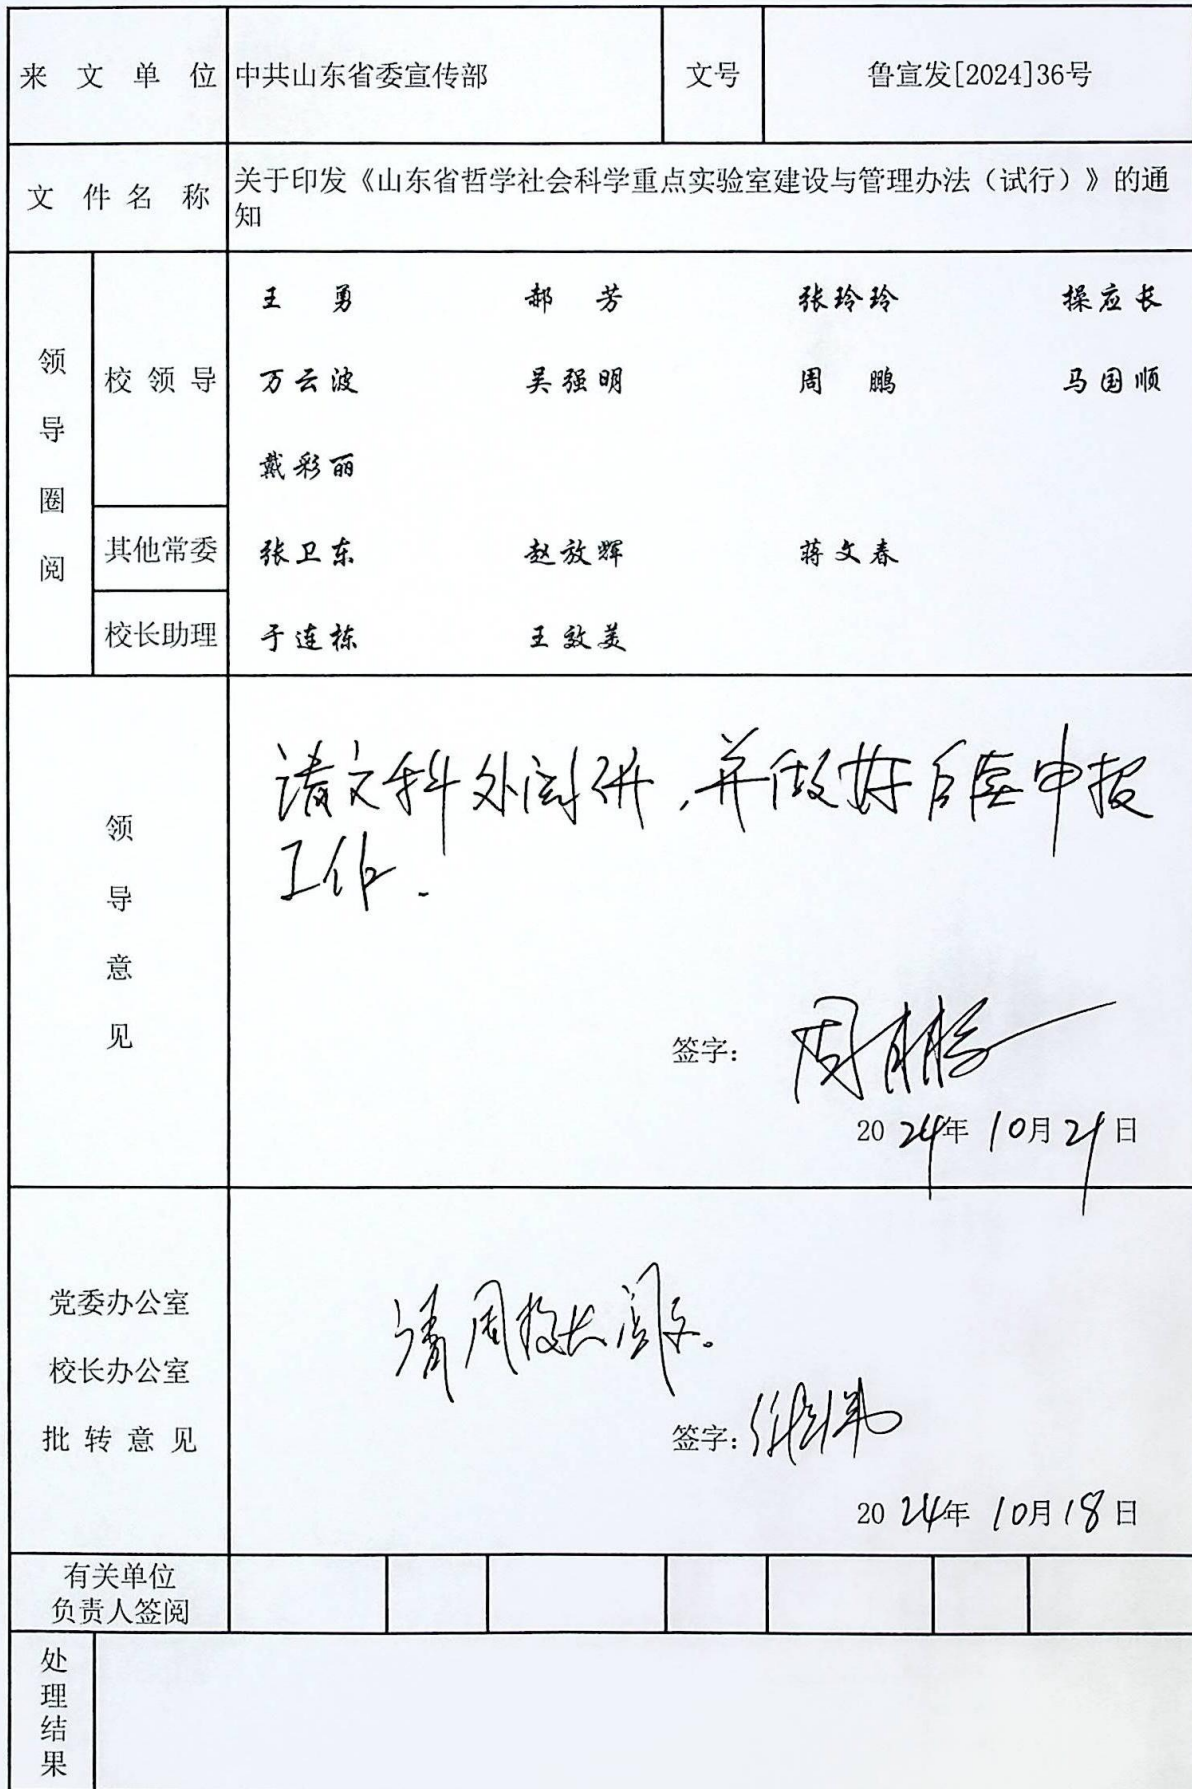 来文单位 中共山东省委宣传部 文号 鲁宣发[2024]36号
文件名称 关于印发《山东省哲学社会科学重点实验室建设与管理办法（试行）》的通
知
领导圈阅
校领导
王勇 郝芳 张玲玲 操应长
万云波 吴强明 周鹏 马国顺
戴彩丽
其他常委 张卫东 赵放辉 蒋文春
校长助理 于连栋 王效美
领导意见
请文科处阅研,并做好后续申报
工作.
签字: 周鹏
2024年10月21日
党委办公室
校长办公室
批转意见
请周校长阅示。
签字:
2024年10月18日
有关单位
负责人签阅
处理结果